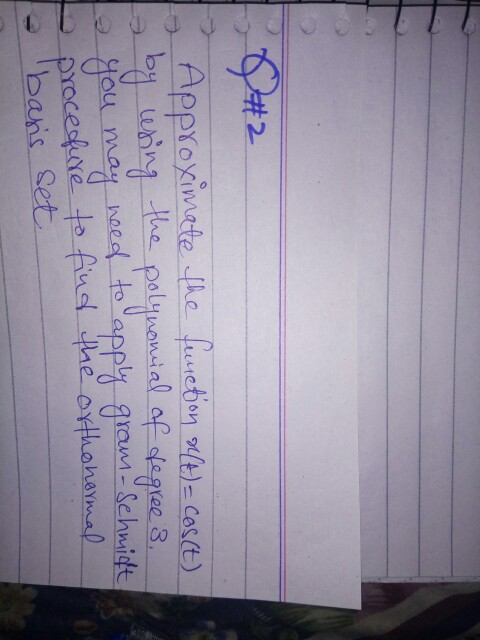 Q#2
Approximate the function x(t) = cos(t)
by using the polynomial of degree 3.
you may need to apply gram-Schmidt
procedure to find the orthonormal
basis set